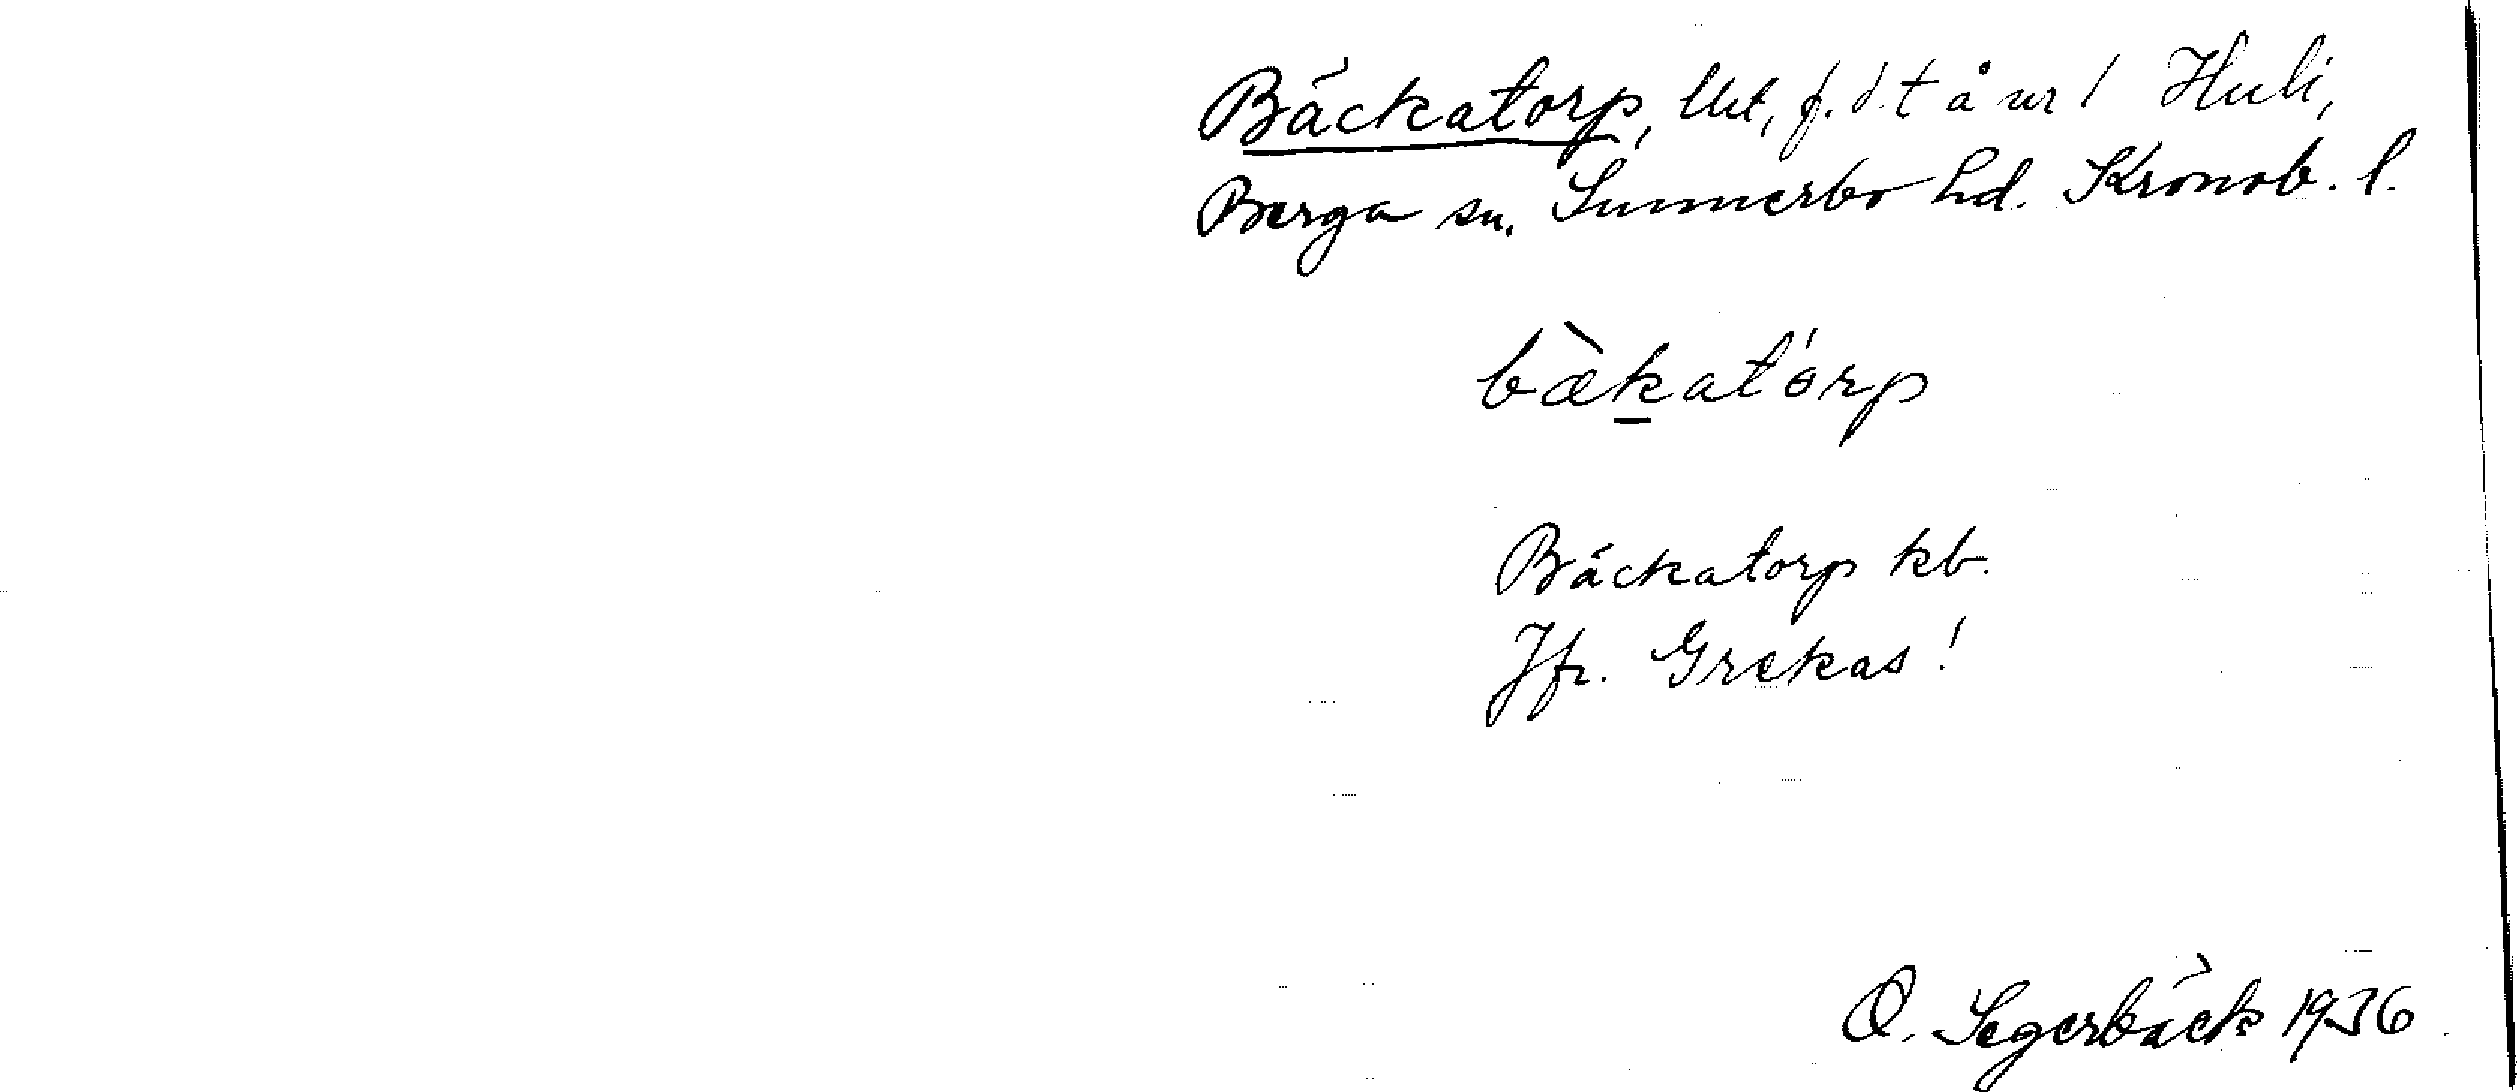 Bäckatorp, lht, f.d. t å ur 1 Huli,
Berga sn. Sunnerbo hd. Kronob. l.
bæ̀katórp
Bäckatorp kb.
Jfr. Grekas!
O. Segerbäck 1936